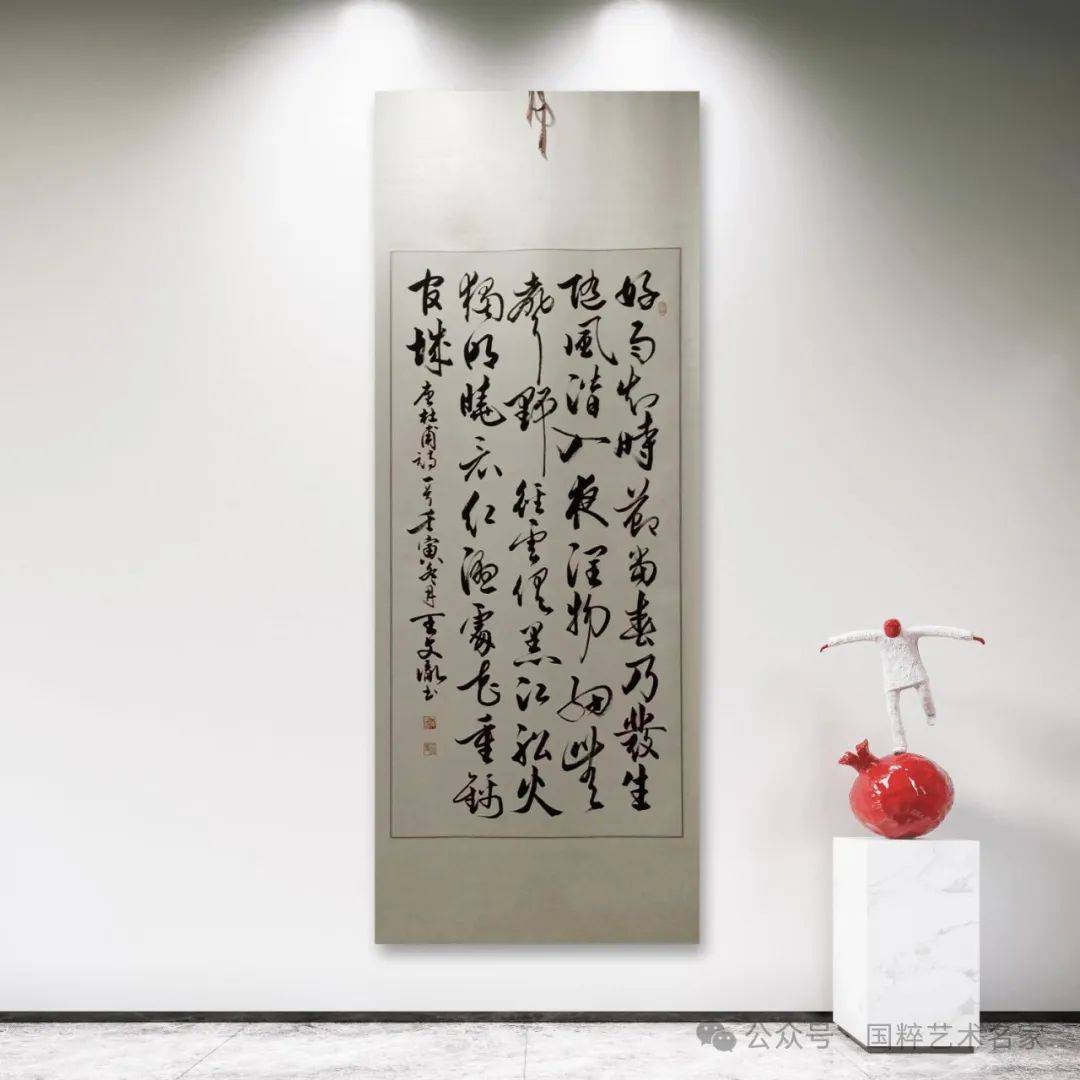 好雨知時節當春乃發生
随風潜入夜潤物細無
聲野徑雲俱黑江船火
獨明曉看紅濕處花重錦
官城 唐杜甫詩一首壬寅冬月王文书
公众号 · 国粹艺术名家